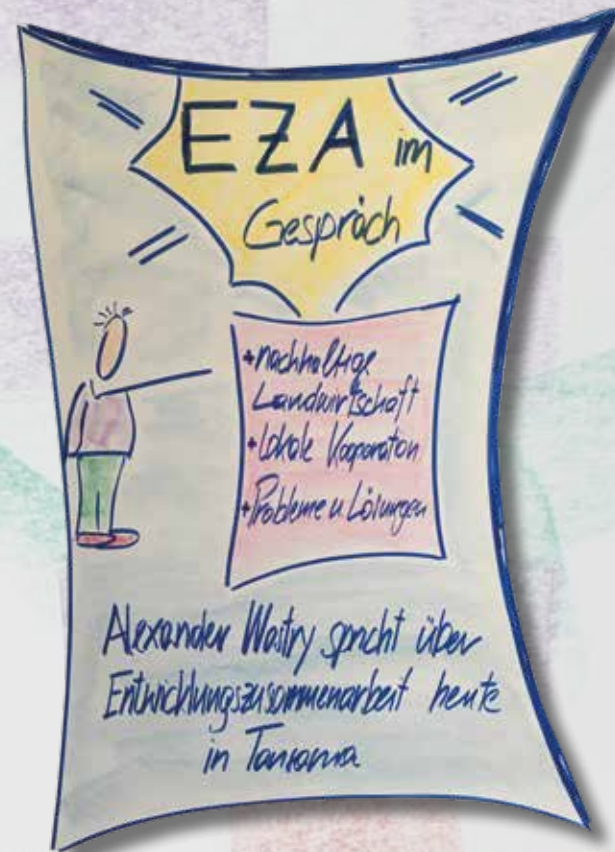 EZA im
Gespräch
+ nachhaltige
Landwirtschaft
+ Lokale Kooperation
+ Probleme u Lösungen
Alexander spricht über
Entwicklungszusammenarbeit heute
in Tansania